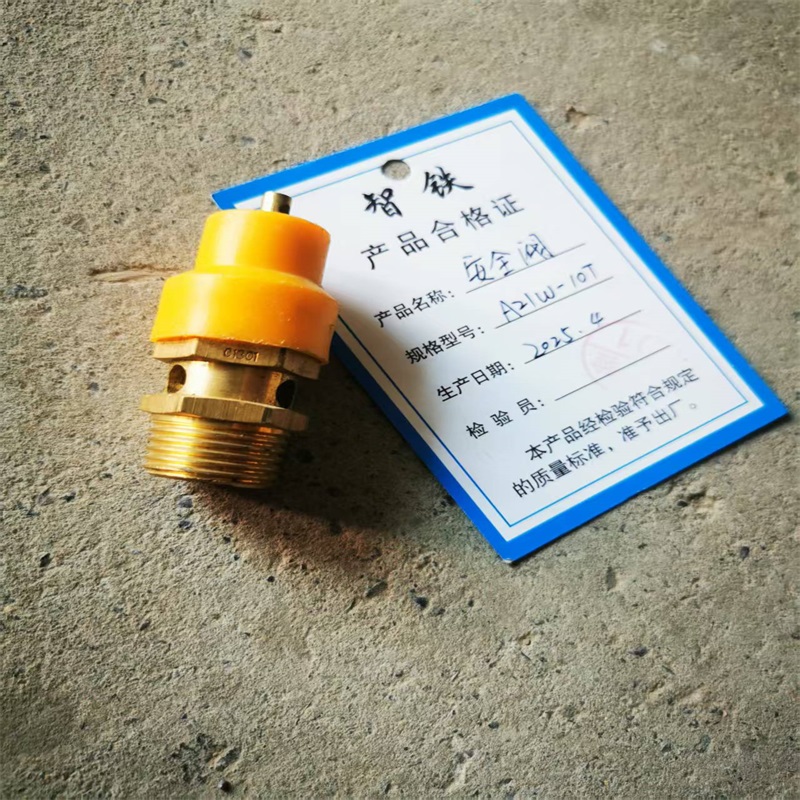 智铁
产品合格证
产品名称：安全阀
规格型号：A21W-10T
生产日期：2025.4
检 验 员：
本产品经检验符合规定
的质量标准，准予出厂。